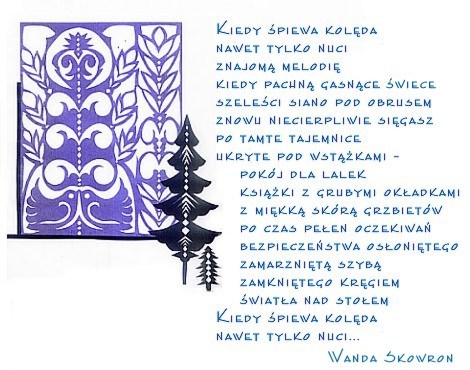 Kiedy śpiewa kolęda
nawet tylko nuci
znajomą melodię
kiedy pachną gasnące świece
szeleści siano pod obrusem
znowu niecierpliwie sięgasz
po tamte tajemnice
ukryte pod wstążkami –
pokój dla lalek
książki z grubymi okładkami
z miękką skórą grzbietów
po czas pełen oczekiwań
bezpieczeństwa osłoniętego
zamarzniętą szybą
zamkniętego kręgiem
światła nad stołem
Kiedy śpiewa kolęda
nawet tylko nuci...
Wanda Skowron